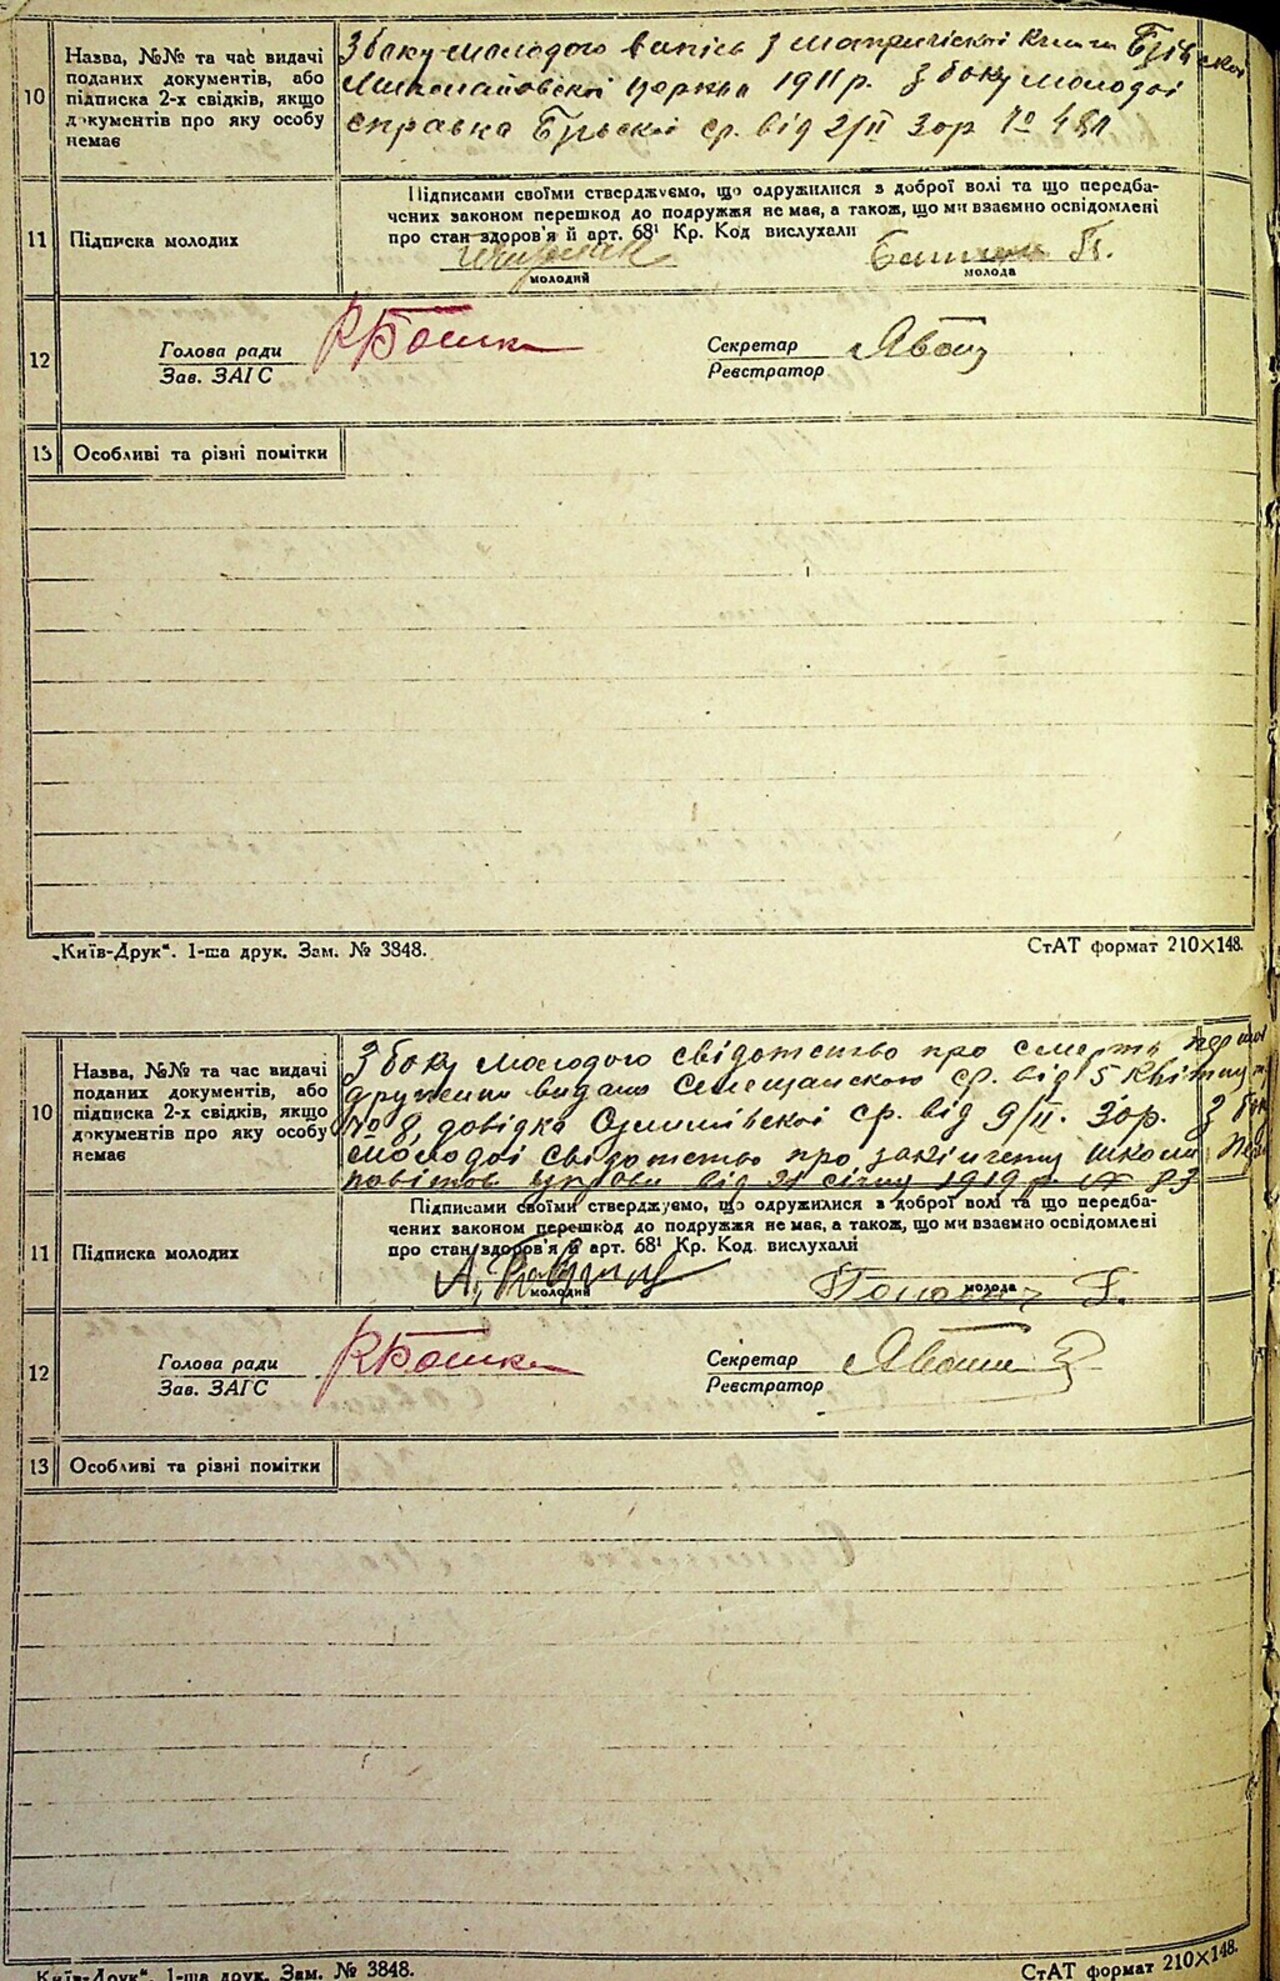 10
Назва, №№ та час видачі
поданих документів, або
підписка 2-х свідків, якщо
документів про яку особу
немає
З боку молодого випісь з метричіскоі книги
Миколаївскої церкви 1911 р. З боку молодоі
справка ср. від 2/II 30 р № 481
11
Підписка молодих
Підписами своїми стверджуємо, що одружилися з доброї волі та що передба-
чених законом перешкод до подружжя не має, а також, що ми взаємно освідомлені
про стан здоров'я й арт. 68¹ Кр. Код вислухали
молодий
молода
12
Голова ради
Зав. ЗАГС
Секретар
Реєстратор
13
Особливі та різні помітки
„Київ-Друк“. 1-ша друк. Зам. № 3848.
СтАТ формат 210×148.
10
Назва, №№ та час видачі
поданих документів, або
підписка 2-х свідків, якщо
документів про яку особу
немає
З боку молодого свідотство про смерть першоі
дружини видано Селещанскою ср. від 5 квітня
№ 8, довідка ср. від 9/II. 30р. З боку
молодоі свідотство про закінчення школи
від 21 січня 1919 р. № 83
11
Підписка молодих
Підписами своїми стверджуємо, що одружилися з доброї волі та що передба-
чених законом перешкод до подружжя не має, а також, що ми взаємно освідомлені
про стан здоров'я й арт. 68¹ Кр. Код. вислухали
молодий
молода
12
Голова ради
Зав. ЗАГС
Секретар
Реєстратор
13
Особливі та різні помітки
„Київ-Друк“. 1-ша друк. Зам. № 3848.
СтАТ формат 210×148.